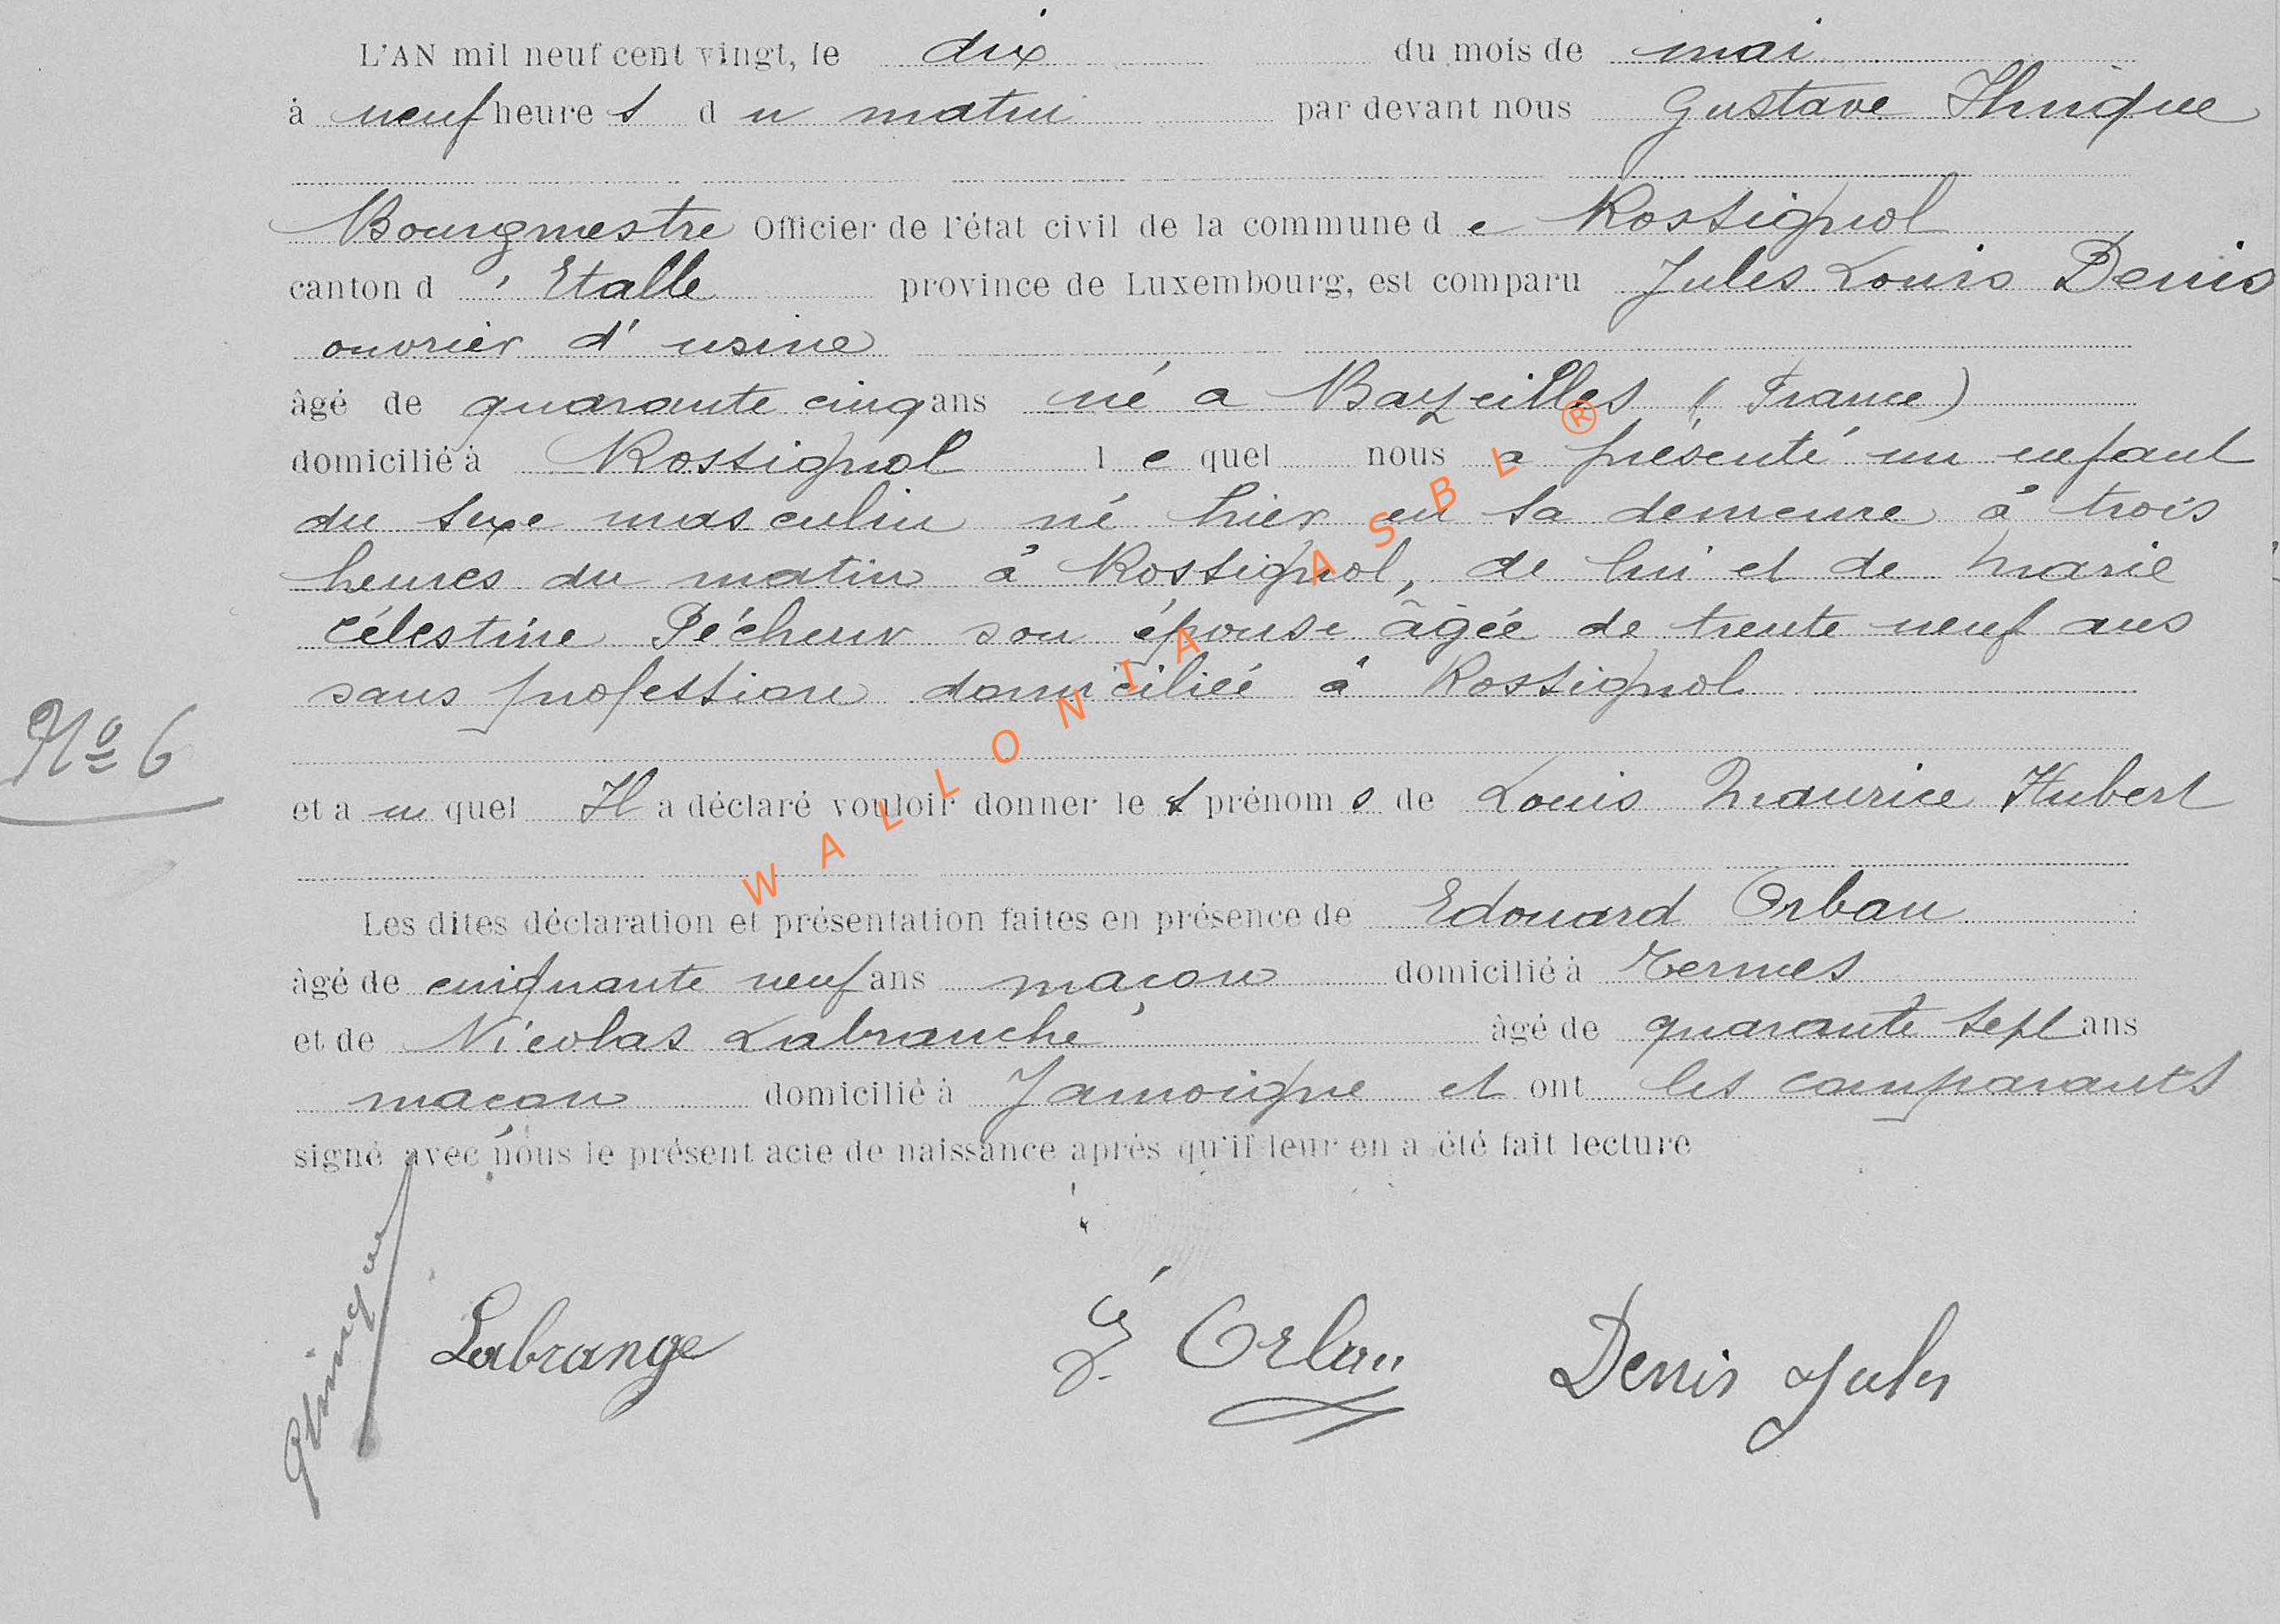 L'AN mil neuf cent vingt, le dix du mois de mai
à neuf heure s d u matin par devant nous Gustave Thirique
Bourgmestre Officier de l'état civil de la commune d e Rossignol
canton d ' Etalle province de Luxembourg, est comparu Jules Louis Denis
ouvrier d'usine
âgé de quarante cinq ans né a Bazeilles (France)
domicilié à Rossignol l e quel nous a présenté un enfant
du sexe masculin né hier en sa demeure à trois
heures du matin à Rossignol, de lui et de Marie
Célestine Pécheur son épouse âgée de trente neuf ans
sans profession domiciliée à Rossignol
No 6
et a u quel Il a déclaré vouloir donner le s prénom s de Louis Maurice Hubert
Les dites déclaration et présentation faites en présence de Edouard Orban
âgé de cinquante neuf ans maçon domicilié à Termes
et de Nicolas Labranche âgé de quarante sept ans
maçon domicilié à Jamoigne et ont les comparants
signé avec nous le présent acte de naissance après qu'il leur en a été fait lecture
Labrange Orban Denis Jules
WALLONIA ASBL ®